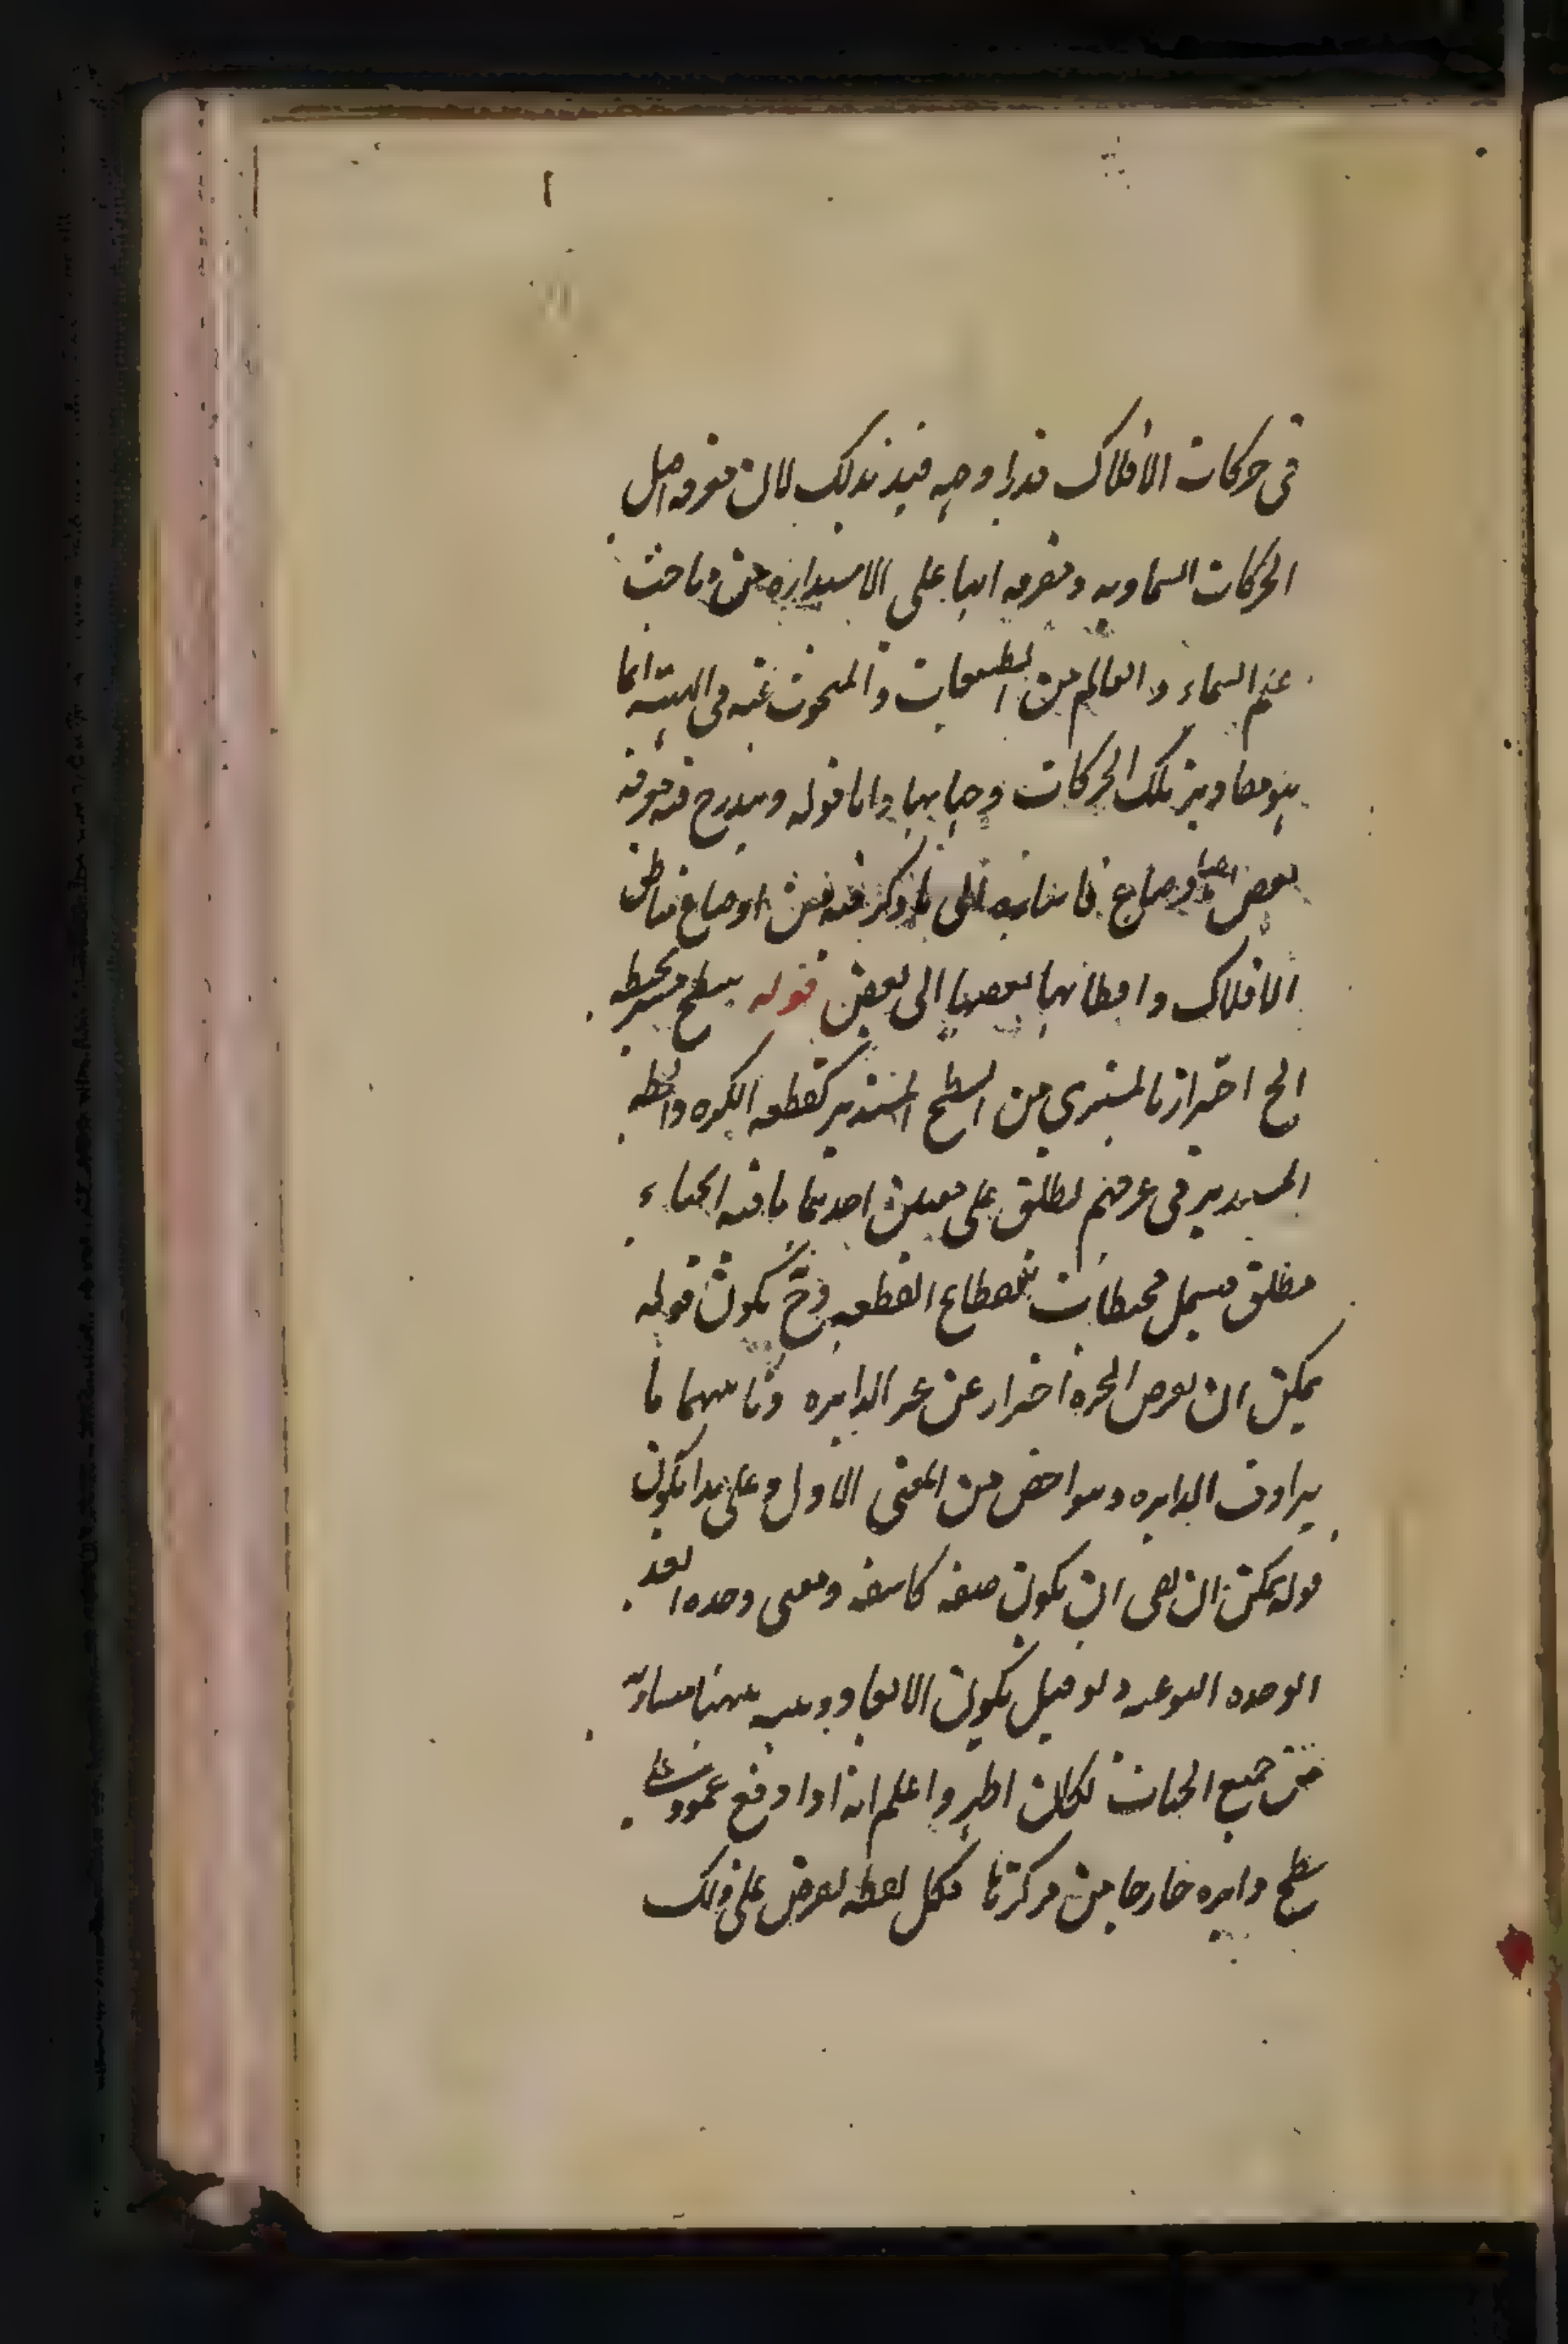 في حركات الافلاك قدرا وجهه قيد بذلك لان معرفه اصل
الحركات السماويه ومعرفه انها على الاستداره من مباحث
علم السماء والعالم من الطبيعيات والمبحوث عنه في الهيئه انما
هو مقادير تلك الحركات وجهاتها واما قوله ويندرج فيه معرفه
بعض الاوضاع فاشاره الى ما ذكر فيه من اوضاع مناطق
الافلاك واقطابها بعضها الى بعض قوله سطح مستو يحيطه
الخ احتراز بالمستوي من السطح المستدير كقطعه الكره والخط
المستدير في عرفهم يطلق على معنيين احدهما ما فيه انحناء
مطلق فيشمل محيطات القطعه وح يكون قوله
يمكن ان يفرض الخ احتراز عن غير الدايره وثانيهما ما
يرادف الدايره وهو اخص من المعنى الاول وعلى هذا يكون
قوله يمكن ان يكون صفه كاشفه ومعنى وحده البعد
الوحده النوعيه ولو قيل يكون الابعاد بينهما متساويه
من جميع الجهات لكان اظهر واعلم انه اذا وقع عمود على
سطح دايره خارجا من مركزها فكل نقطه تفرض على ذلك